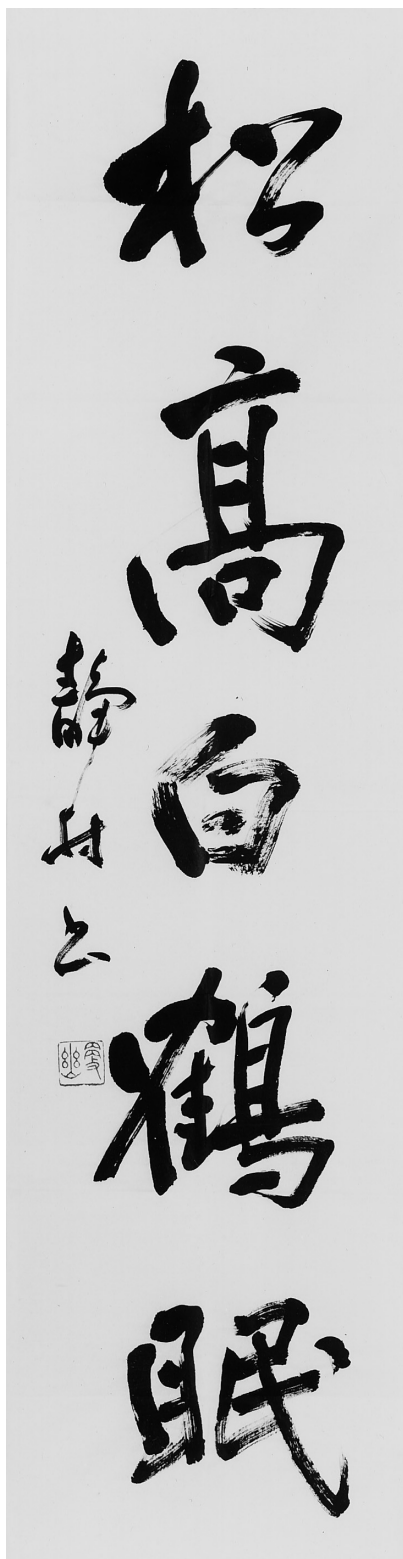 松高白鶴眠
静村书